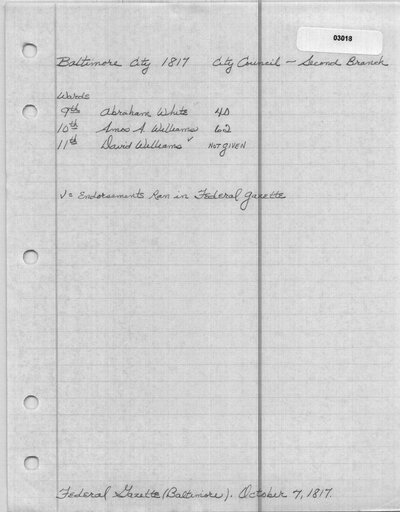 03018
Baltimore City 1817 City Council - Second Branch
Wards
9th Abraham White 40
10th Amos A. Williams 62
11th David Williams √ NOT GIVEN
√ = Endorsements Ran in Federal Gazette
Federal Gazette (Baltimore). October 7, 1817.